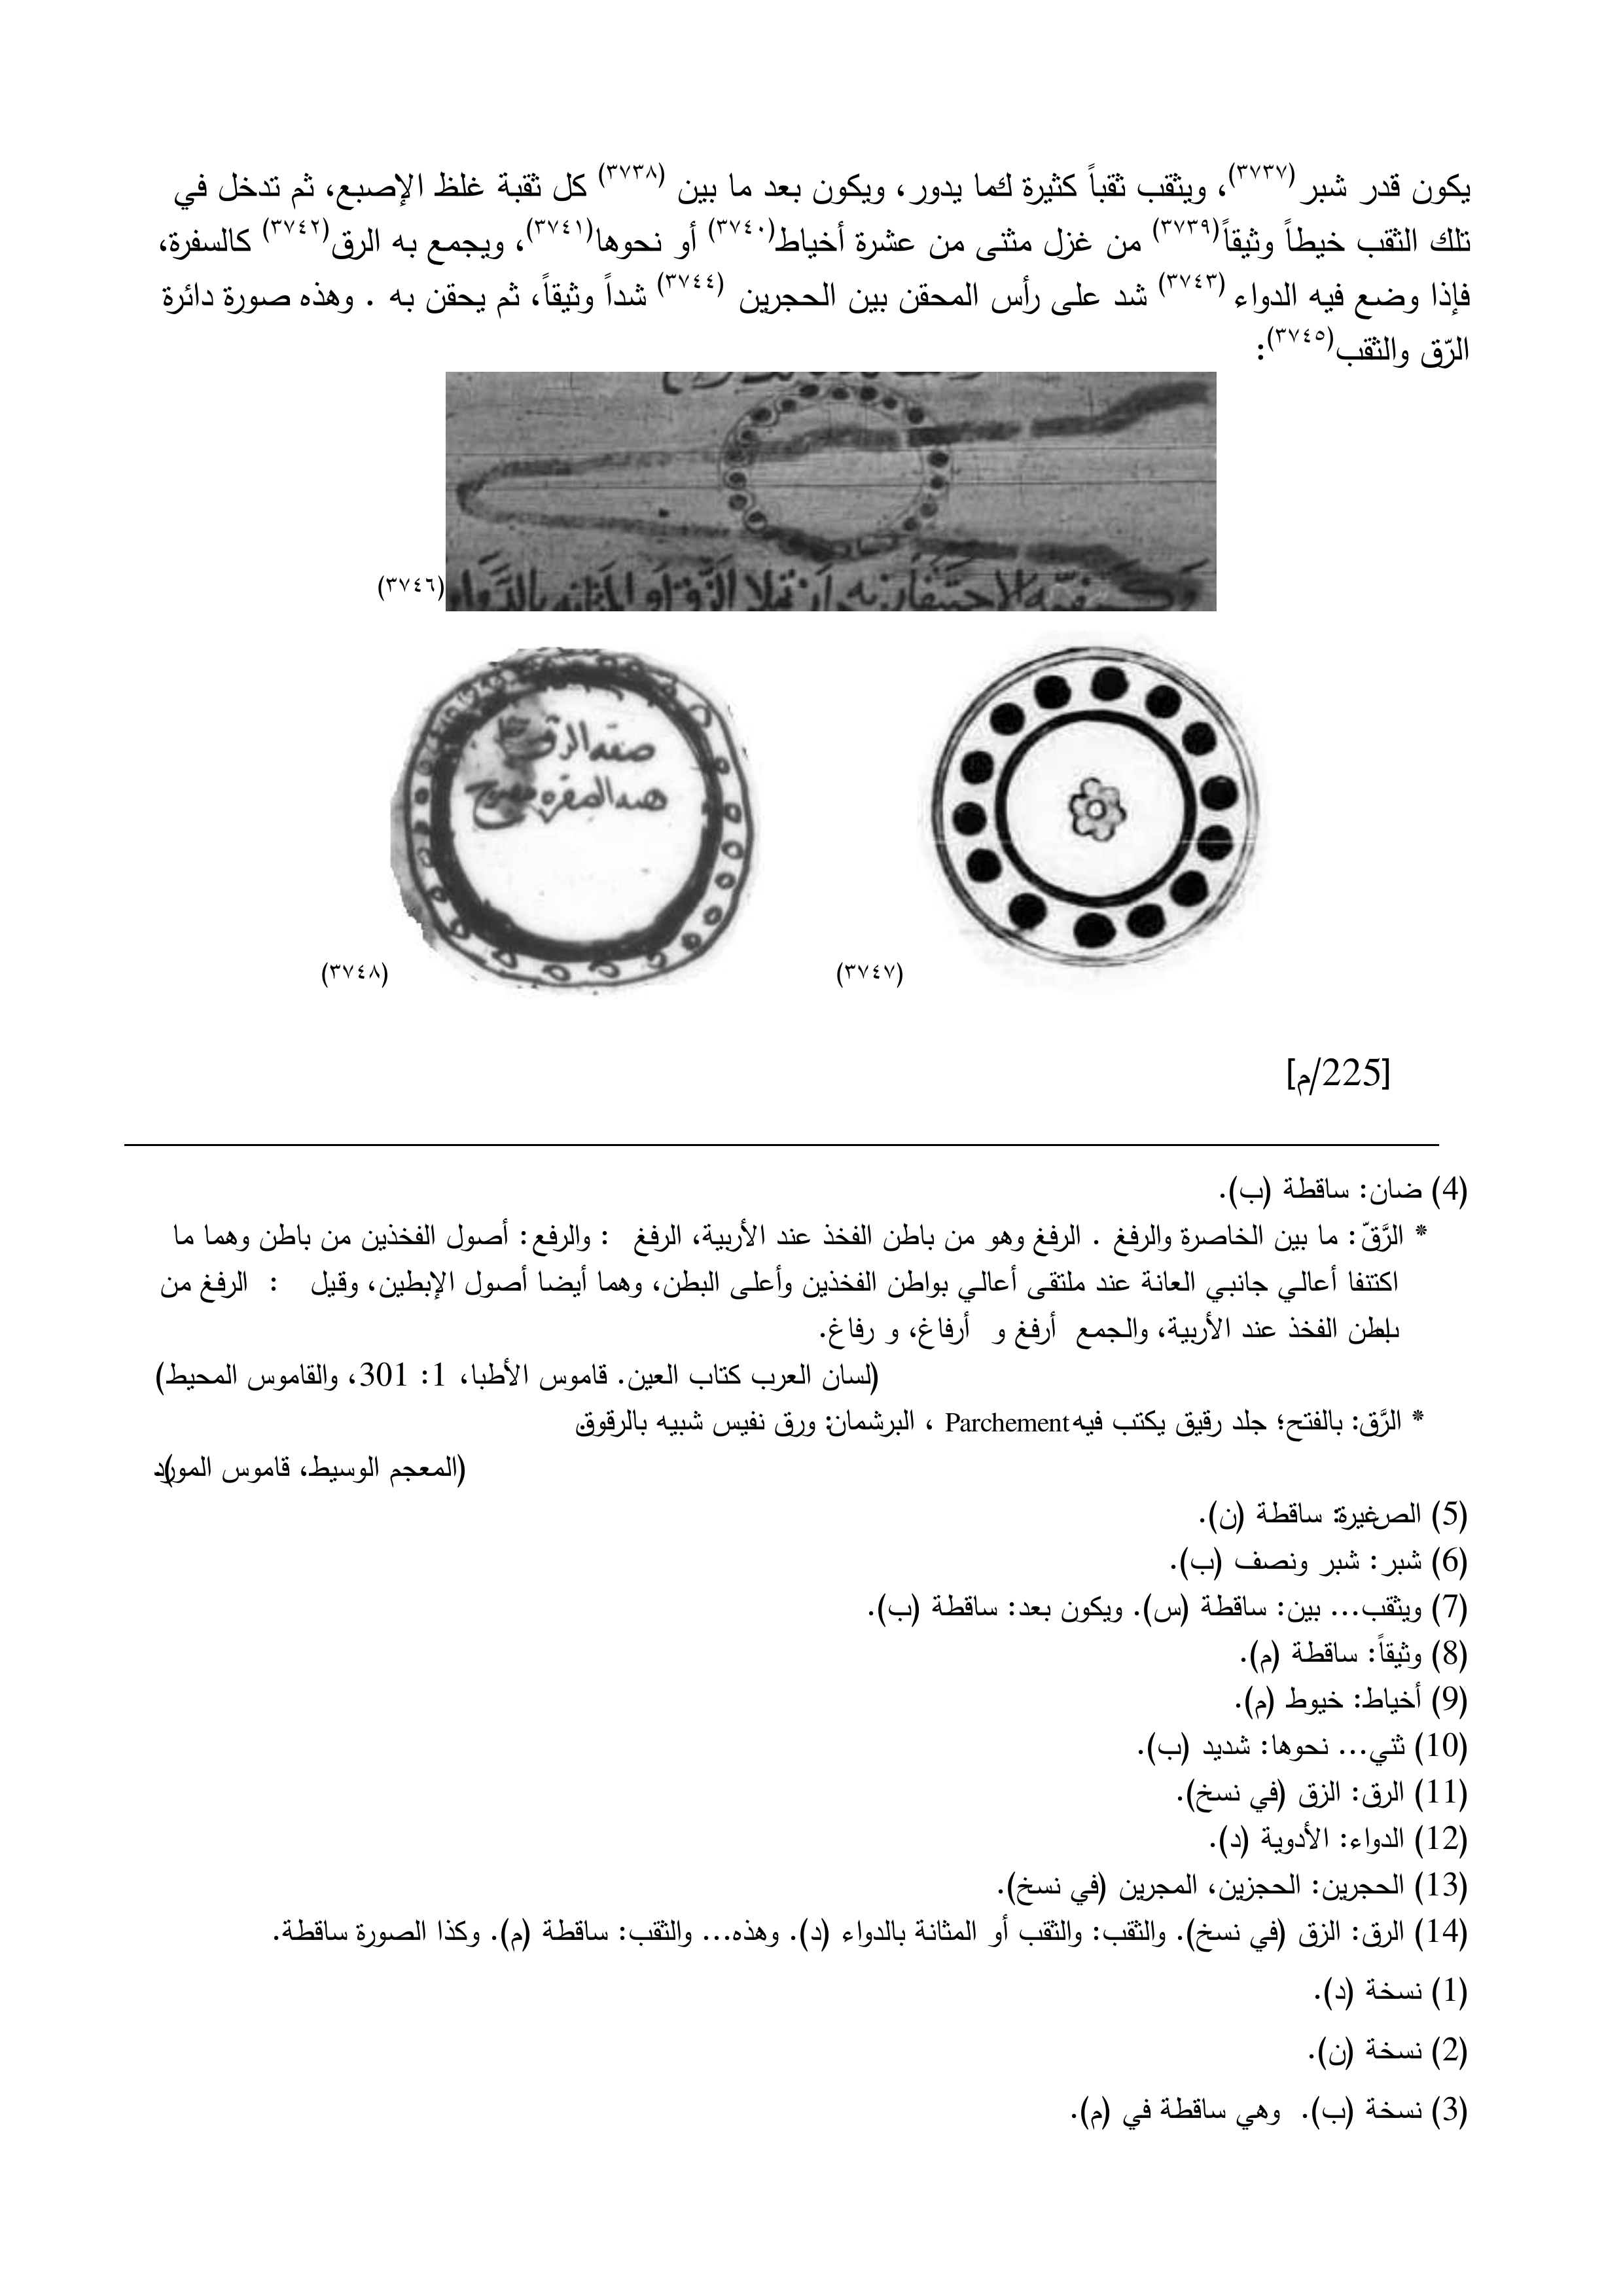 يكون قدر شبر(٣٧٣٧)، ويثقب ثقباً كثيرة كما يدور، ويكون بعد ما بين (٣٧٣٨) كل ثقبة غلظ الإصبع، ثم تدخل في
تلك الثقب خيطاً وثيقاً(٣٧٣٩) من غزل مثنى من عشرة أخياط(٣٧٤٠) أو نحوها(٣٧٤١)، ويجمع به الرق(٣٧٤٢) كالسفرة،
فإذا وضع فيه الدواء (٣٧٤٣) شد على رأس المحقن بين الحجرين (٣٧٤٤) شداً وثيقاً، ثم يحقن به . وهذه صورة دائرة
الرّق والثقب(٣٧٤٥):
وكيفية الاحتقان به ان تملا الزق او المثانة بالدواء
(٣٧٤٦)
صفة الرق
هذه
(٣٧٤٧)
(٣٧٤٨)
[225/م]
(4) ضان: ساقطة (ب).
* الرَّقّ: ما بين الخاصرة والرفغ . الرفغ وهو من باطن الفخذ عند الأربية، الرفغ : والرفع: أصول الفخذين من باطن وهما ما
اكتنفا أعالي جانبي العانة عند ملتقى أعالي بواطن الفخذين وأعلى البطن، وهما أيضا أصول الإبطين، وقيل : الرفغ من
باطن الفخذ عند الأربية، والجمع أرفغ و أرفاغ، و رفاغ.
(لسان العرب كتاب العين. قاموس الأطبا، 1: 301، والقاموس المحيط)
* الرَّق: بالفتح؛ جلد رقيق يكتب فيه Parchement ، البرشمان: ورق نفيس شبيه بالرقوق.
(المعجم الوسيط، قاموس المورد)
(5) الصغيرة: ساقطة (ن).
(6) شبر: شبر ونصف (ب).
(7) ويثقب... بين: ساقطة (س). ويكون بعد: ساقطة (ب).
(8) وثيقاً: ساقطة (م).
(9) أخياط: خيوط (م).
(10) ثني... نحوها: شديد (ب).
(11) الرق: الزق (في نسخ).
(12) الدواء: الأدوية (د).
(13) الحجرين: الحجزين، المجرين (في نسخ).
(14) الرق: الزق (في نسخ). والثقب: والثقب أو المثانة بالدواء (د). وهذه... والثقب: ساقطة (م). وكذا الصورة ساقطة.
(1) نسخة (د).
(2) نسخة (ن).
(3) نسخة (ب). وهي ساقطة في (م).